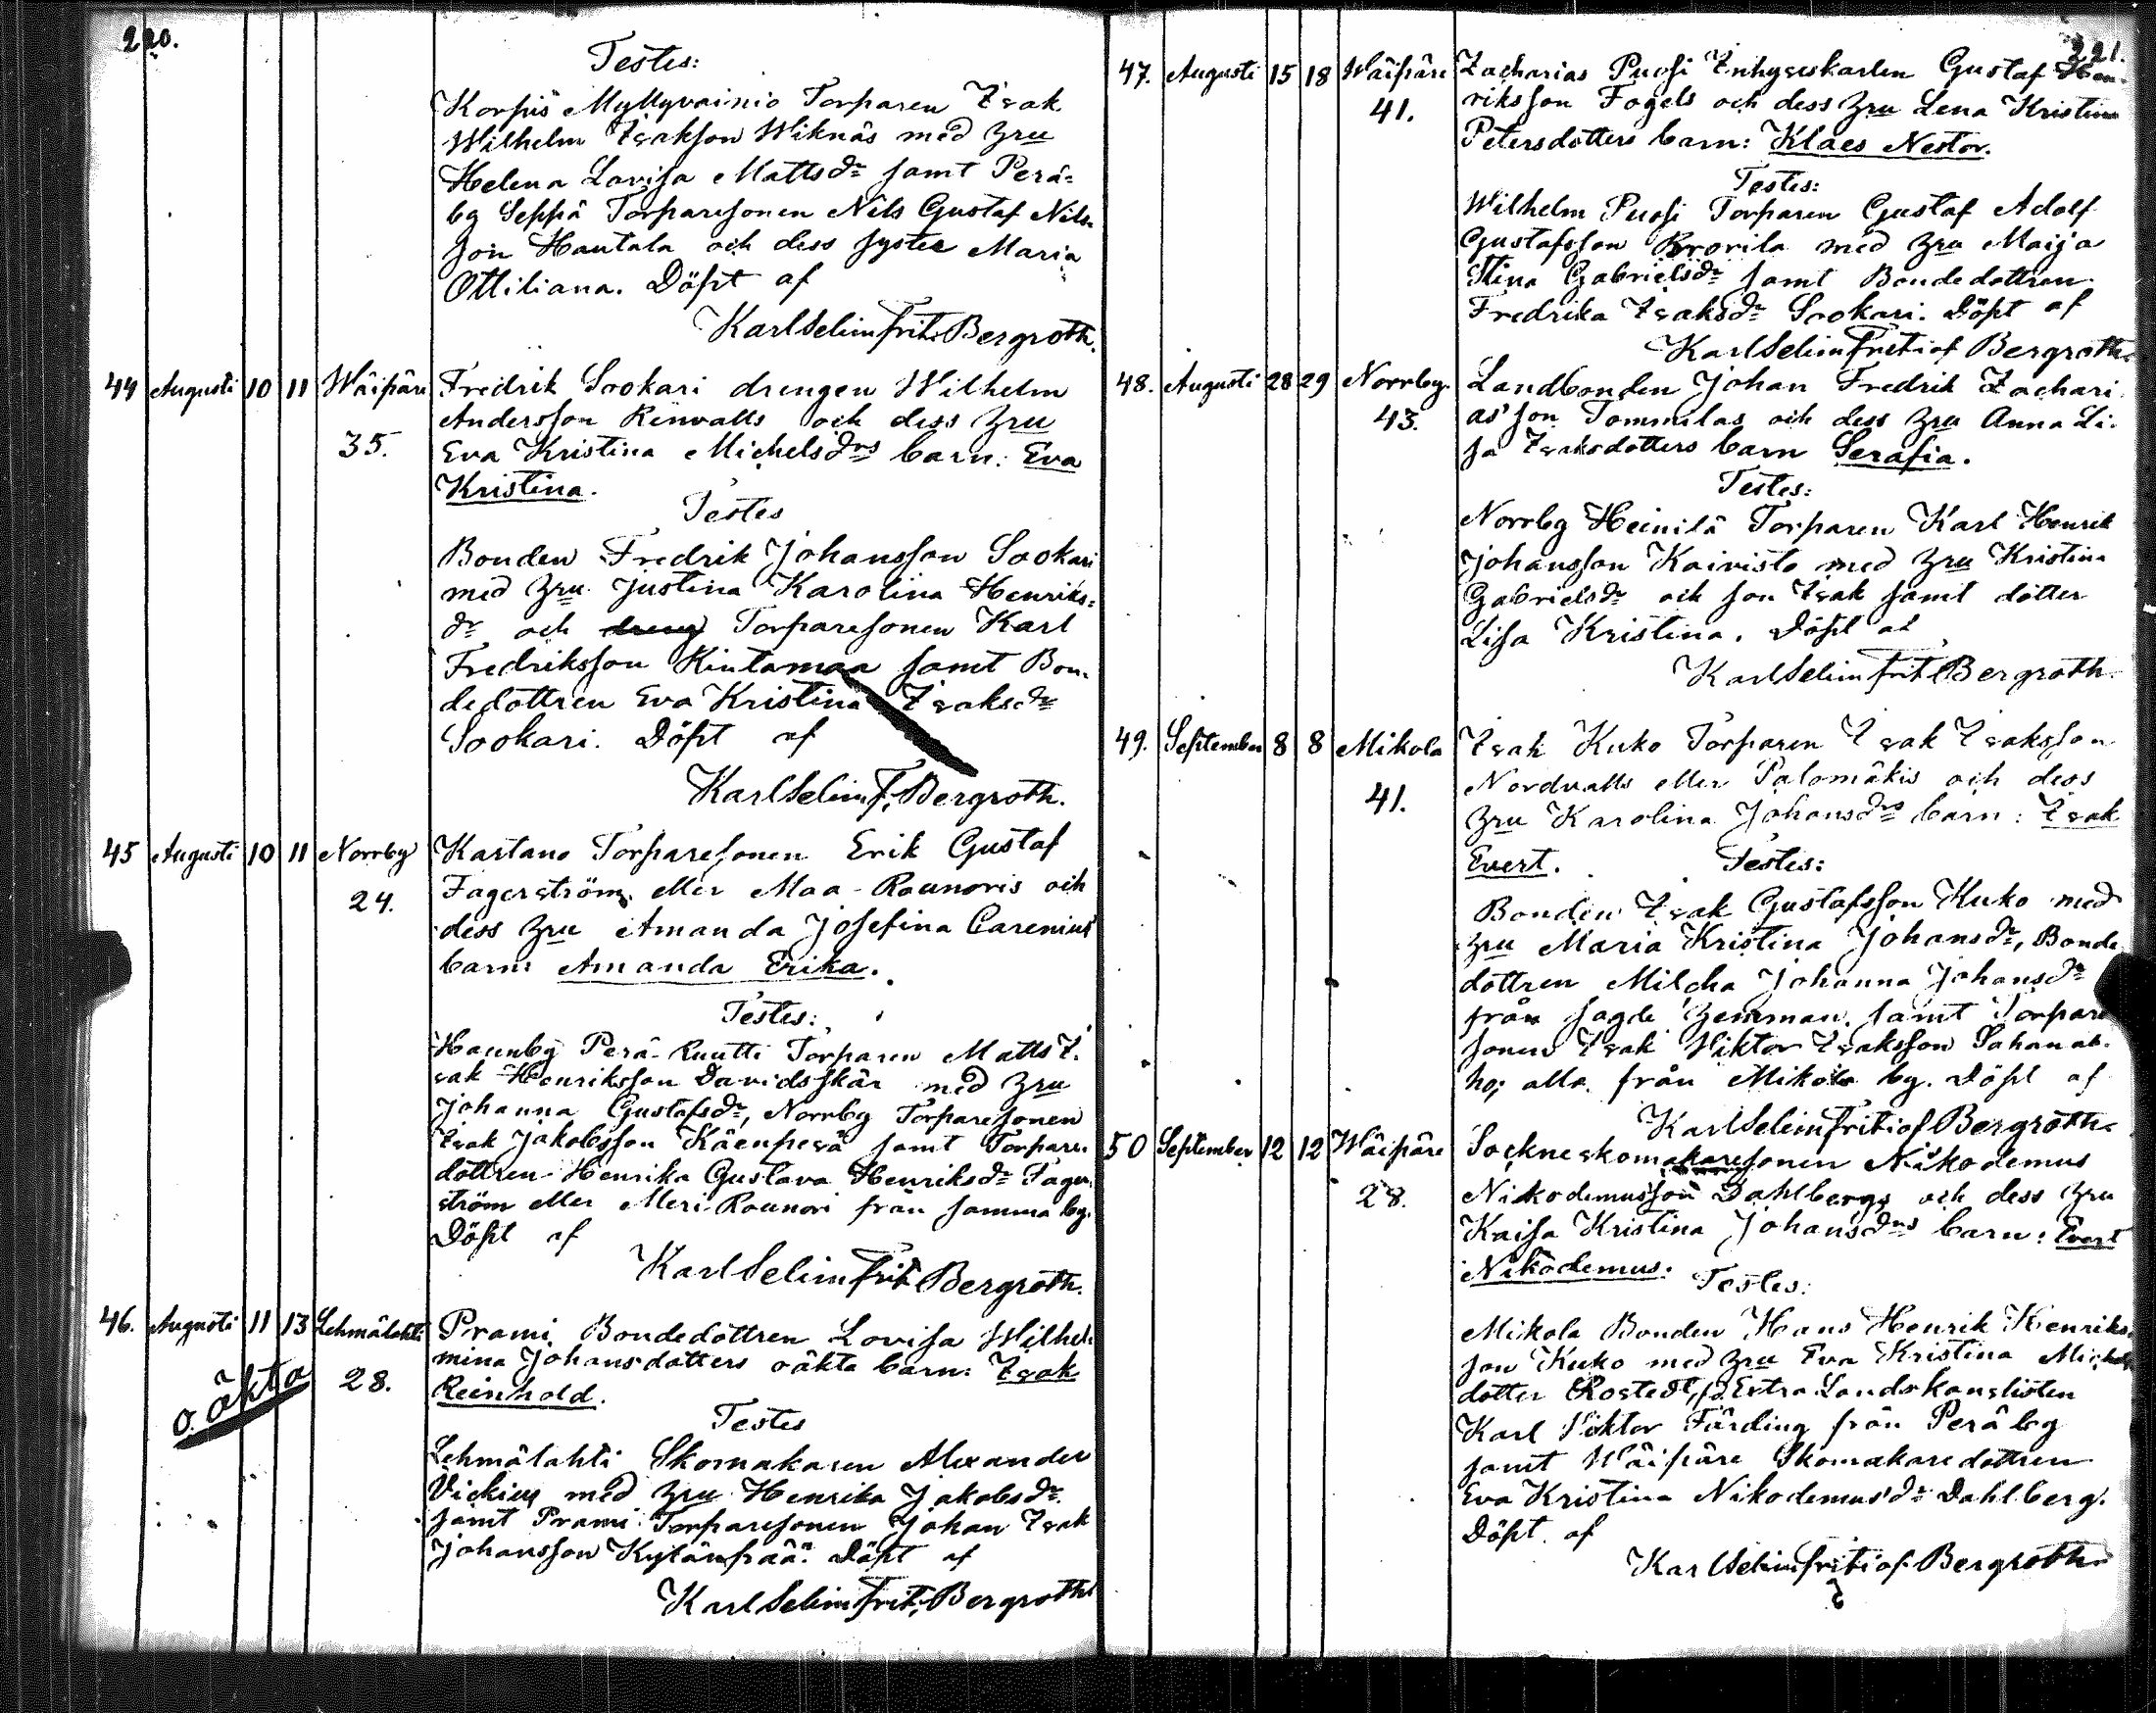 220.
Testes:
Korpis Myllyvainio Torparen Isak
Wilhelm Isaksson Wiknäs med Hru
Helena Lovisa Mattsdr samt Perä=
by Seppä Torparesonen Nils Gustaf Nils-
son Hautala och dess syster Maria
Ottiliana. Döpt af
Karl Selim Frit. Bergroth.
44 Augusti 10 11 Wäipäre Fredrik Sookari drengen Wilhelm
Andersson Renvalls och dess Hru
35. Eva Kristina Michelsdrs barn: Eva
Kristina.
Testes
Bonden Fredrik Johansson Sookari
med Hru Justina Karolina Henriks=
dr och dreng Torparesonen Karl
Fredriksson Kintamaa samt Bon-
dedottren Eva Kristina Isaksdr
Sookari. Döpt af
Karl Selim F. Bergroth.
45 Augusti 10 11 Norrby Kartano Torparesonen Erik Gustaf
24. Fagerström eller Maa-Raunoris och
dess Hru Amanda Josefina Carenius
barn: Amanda Erika.
Testes:
Haunby Perä-Ruutti Torparen Matts I-
sak Henriksson Davidsskär med Hru
Johanna Gustafsdr, Norrby Torparesonen
Isak Jakobsson Käenperä samt Torpare-
dottren Henrika Gustava Henriksdr Fager-
ström eller Meri-Raunori från samma by.
Döpt af
Karl Selim Frit. Bergroth.
46. Augusti 11 13 Lehmälahti Prami Bondedottren Lovisa Wilhel-
mina Johansdotters oäkta barn: Isak
o. äkta 28. Reinhold.
Testes
Lehmälahti Skomakaren Alexander
Vickius med Hru Henrika Jakobsdr
samt Prami Torparesonen Johan Isak
Johansson Kylänpää. Döpt af
Karl Selim Frit. Bergroth
221.
47. Augusti 15 18 Wäipäre Zacharias Puosi Inhyseskarlen Gustaf Hen-
41. riksson Fogels och dess Hru Lena Kristina
Petersdotters barn: Klaes Nestor.
Testes:
Wilhelm Puosi Torparen Gustaf Adolf
Gustafsson Brorila med Hru Maija
Stina Gabrielsdr samt Bondedottren
Fredrika Isaksdr Sookari. Döpt af
Karl Selim Fritiof Bergroth.
48. Augusti 28 29 Norrby Landbonden Johan Fredrik Zachari-
43. as'son Tommilas och dess Hru Anna Li-
sa Isaksdotters barn Serafia.
Testes:
Norrby Heinilä Torparen Karl Henrik
Johansson Koivisto med Hru Kristina
Gabrielsdr och son Isak samt dotter
Lisa Kristina. Döpt af
Karl Selim Frit. Bergroth.
49. September 8 8 Mikola Isak Kuko Torparen Isak Isaksson
Nordvalls eller Palomäkis och dess
41. Hru Karolina Johansdrs barn: Isak
Evert. Testes:
Bonden Isak Gustafsson Kuko med
Hru Maria Kristina Johansdr, Bonde-
dottren Milcha Johanna Johansdr
från sagde hemman samt Torpare
sonen Isak Viktor Isaksson Sahanah-
ho; alla från Mikola by. Döpt af
Karl Selim Fritiof Bergroth.
50 September 12 12 Wäipäre Sockneskomakaresonen Nikodemus
28. Nikodemusson Dahlbergs och dess Hru
Kaisa Kristina Johansdrs barn: Evert
Nikodemus. Testes:
Mikola Bonden Hans Henrik Henriks-
son Kuko med Hru Eva Kristina Michels
dotter Rostedt, Extra Landskanslisten
Karl Viktor Färding från Peräby
samt Wäipäre Skomakaredottren
Eva Kristina Nikodemus'dr Dahlberg.
Döpt af
Karl Selim Fritiof Bergroth